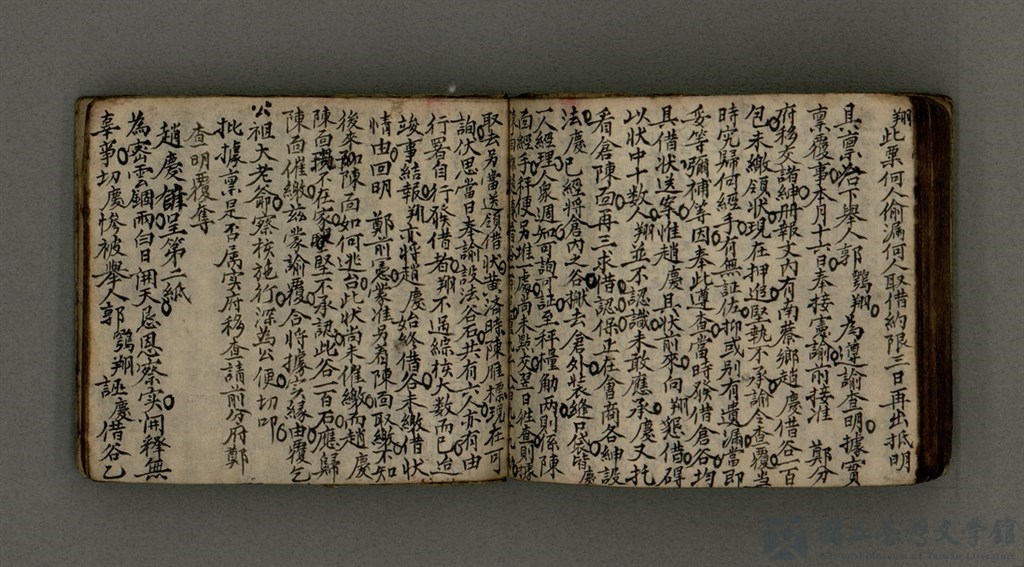 翔此粟何人偷漏何人取借約限三日再出抵明
具稟治下舉人郭鶚翔為遵諭查明據實
稟覆事本月十六日奉接憲諭前接准鄭分
府移交諸紳冊報文內有南蔡鄉趙慶借谷一百
包未繳領狀現在押追堅執不承諭令查覆當
時究歸何經手有無証佐抑或別有遺漏當即
妥等彌補等因奉此遵查當時發借倉谷均
具借狀送案惟趙慶具狀前來向翔懇借碍
以狀中十数人翔並不認識未敢應承慶又托
看倉陳面再三求借認保正在會商各紳設
法慶已經將倉內之谷搬去倉外裝縫口袋皆慶
一人經理人衆週知可詢可証至秤糧觔両則係陳
面經手秤便另堆一處尚未點交翌日往查則據
取去另當送領借狀黃済時陳雁標現在可
詢伏思當日奉諭設法谷石共有六人亦有由
行署自行發借者翔不過綜核大数而已迨
竣事結報翔亦將趙慶始終借谷未繳借狀
情由回明鄭前憲蒙准另看陳面取繳不知
後來陳面如何逃亡此狀尚未催繳而趙慶
陳面現不在家堅不承認此谷一百石應歸
陳面催繳茲蒙諭覆合將據实緣由覆乞
公祖大老爺察核施行深為公便切叩
批據稟是否属实府移查請前分府鄭
查明覆奪
趙慶館呈第二紙
為密云錮雨白日開天忌恩察实開釋無
辜事切慶慘被舉人郭鶚翔誣慶借谷乙